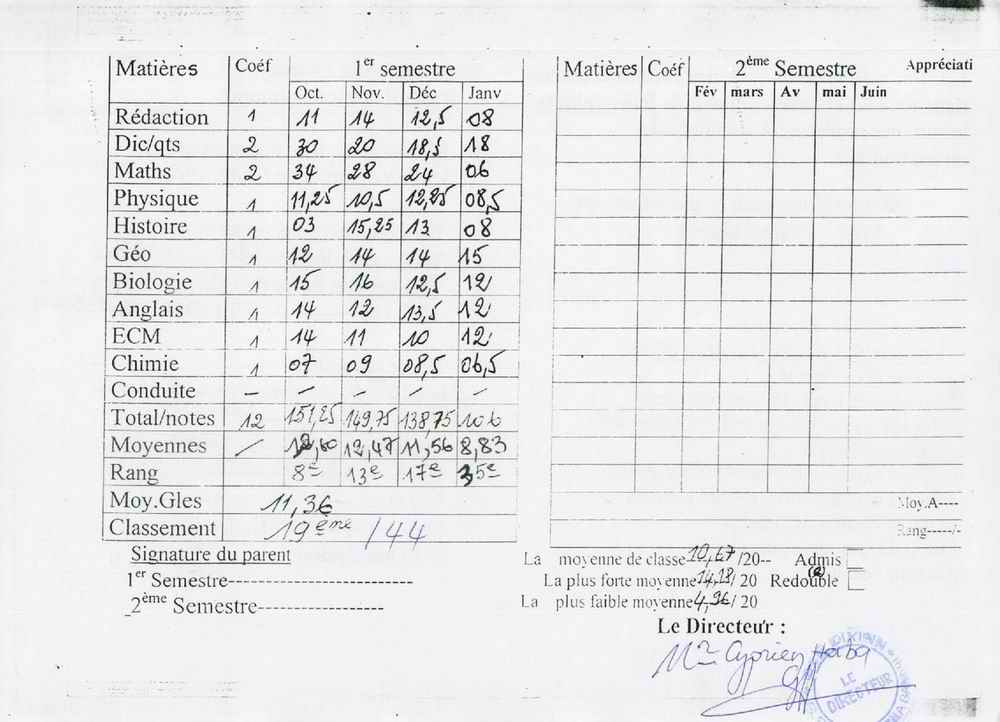 Matières Coéf 1er semestre
Oct. Nov. Déc Janv
Rédaction 1 11 14 12,5 08
Dic/qts 2 30 20 18,5 18
Maths 2 34 28 24 06
Physique 1 11,25 10,5 12,25 08,5
Histoire 1 03 15,25 13 08
Géo 1 12 14 14 15
Biologie 1 15 16 12,5 12
Anglais 1 14 12 13,5 12
ECM 1 14 11 10 12
Chimie 1 07 09 08,5 06,5
Conduite - - - - -
Total/notes 12 151,25 149,75 138,75 106
Moyennes / 12,60 12,47 11,56 8,83
Rang 8e 13e 17e 35e
Moy.Gles 11,36
Classement 19ème /44
Signature du parent
1er Semestre-----------------------
2ème Semestre----------------
Matières Coéf 2ème Semestre Appréciati
Fév mars Av mai Juin
Moy.A----
Rang-----/-
La moyenne de classe 10,67 /20-- Admis
La plus forte moyenne 14,18/ 20 Redouble (e)
La plus faible moyenne 4,96/ 20
Le Directeur :
Mr Cyprien
LE
DIRECTEUR